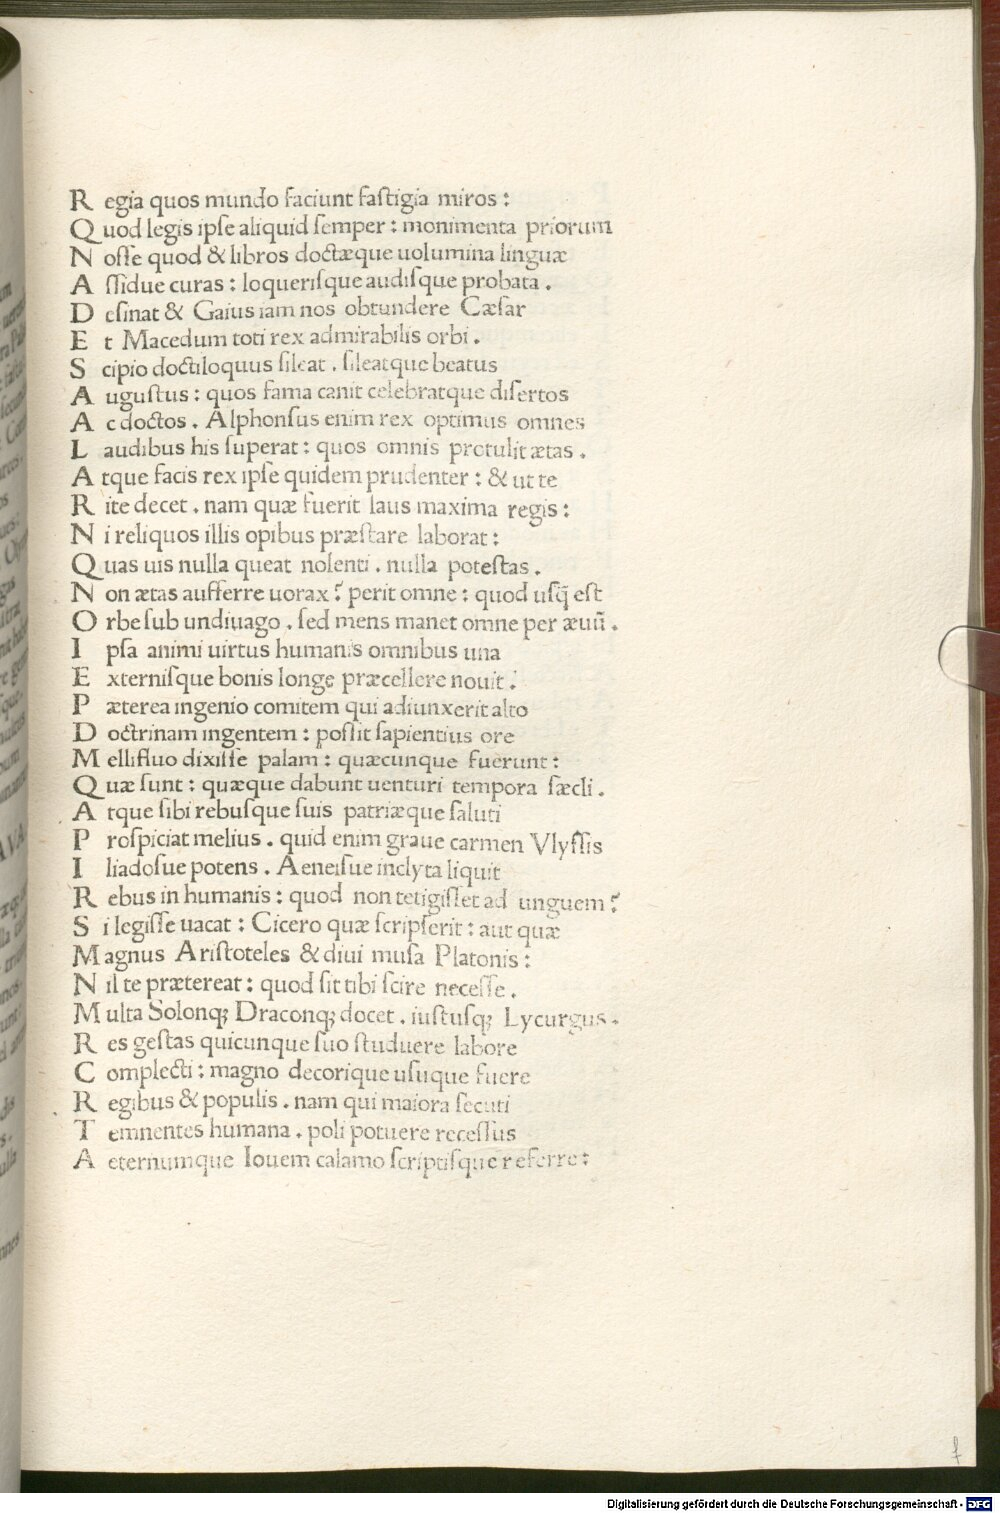 R egia quos mundo faciunt faſtigia miros :
Q uod legis ipſe aliquid ſemper : monimenta priorum
N oſſe quod & libros doctæque uolumina linguæ
A ſſidue curas : loqueriſque audiſque probata .
D eſinat & Gaius iam nos obtundere Cæſar
E t Macedum toti rex admirabilis orbi .
S cipio doctiloquus ſileat . ſileatque beatus
A uguſtus : quos fama canit celebratque diſertos
A c doctos . Alphonſus enim rex optimus omnes
L audibus his ſuperat : quos omnis protulit ætas .
A tque facis rex ipſe quidem prudenter : & ut te
R ite decet . nam quæ fuerit laus maxima regis :
N i reliquos illis opibus præſtare laborat :
Q uas uis nulla queat nolenti . nulla poteſtas .
N on ætas aufferre uorax ? perit omne : quod uſq̃ eſt
O rbe ſub undiuago . ſed mens manet omne per æuũ .
I pſa animi uirtus humanis omnibus una
E xterniſque bonis longe præcellere nouit .
P æterea ingenio comitem qui adiunxerit alto
D octrinam ingentem : poſſit ſapientius ore
M ellifluo dixiſſe palam : quæcunque fuerunt :
Q uæ ſunt : quæque dabunt uenturi tempora ſæcli .
A tque ſibi rebuſque ſuis patriæque ſaluti
P roſpiciat melius . quid enim graue carmen Vlyſſis
I liadoſue potens . Aeneiſue inclyta liquit
R ebus in humanis : quod non tetigiſſet ad unguem ?
S i legiſſe uacat : Cicero quæ ſcripſerit : aut quæ
M agnus Ariſtoteles & diui muſa Platonis :
N il te prætereat : quod ſit tibi ſcire neceſſe .
M ulta Solonq; Draconq; docet . iuſtuſq; Lycurgus .
R es geſtas quicunque ſuo ſtuduere labore
C omplecti : magno decorique uſuque fuere
R egibus & populis . nam qui maiora ſecuti
T emnentes humana . poli potuere receſſus
A eternumque Iouem calamo ſcriptiſque referre :
Digitalisierung gefördert durch die Deutsche Forschungsgemeinschaft - DFG